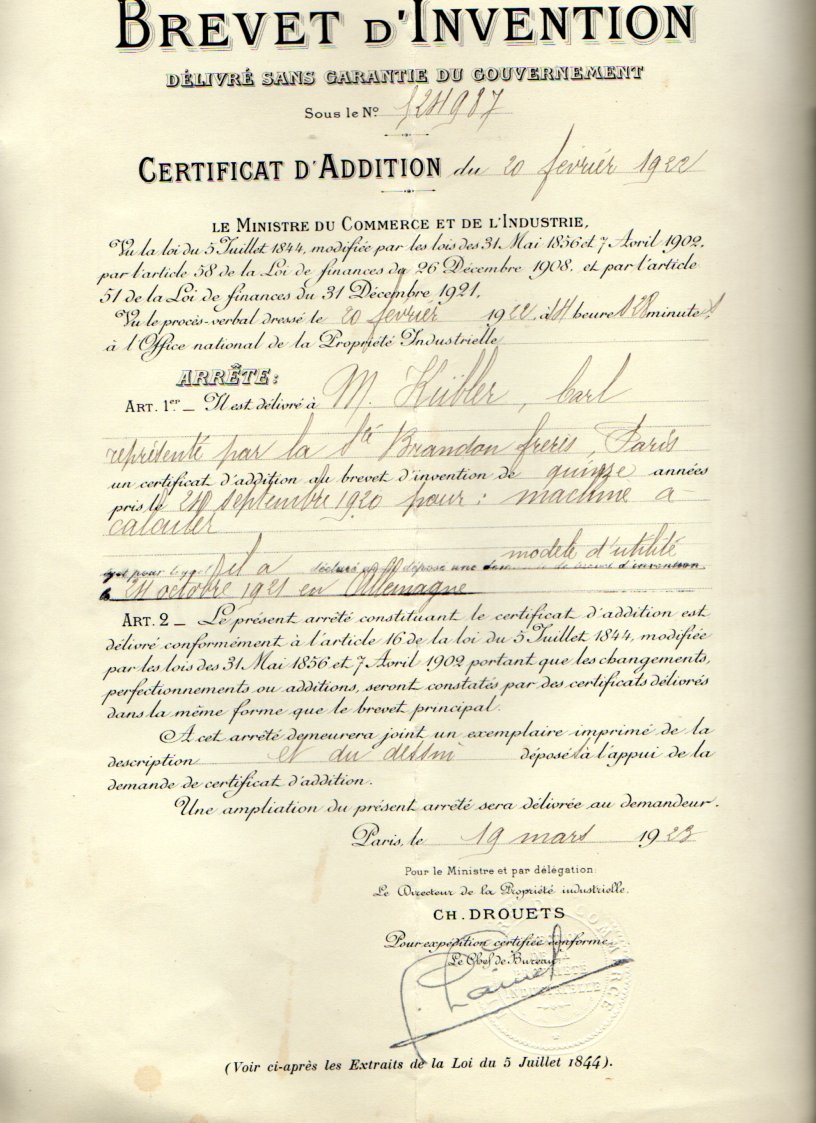 BREVET D'INVENTION
DÉLIVRÉ SANS GARANTIE DU GOUVERNEMENT
Sous le N°
CERTIFICAT D'ADDITION du 20 février 1922
LE MINISTRE DU COMMERCE ET DE L'INDUSTRIE,
Vu la loi du 5 Juillet 1844, modifiée par les lois des 31 Mai 1856 et 7 Avril 1902,
par l'article 58 de la Loi de finances du 26 Décembre 1908, et par l'article
51 de la Loi de finances du 31 Décembre 1921,
Vu le procès-verbal dressé le 20 février 1922, à 14 heures 28 minutes,
à l'Office national de la Propriété Industrielle
ARRÊTE:
ART. 1er._ Il est délivré à M. Kübler, Carl
représenté par la Sté Brandon frères, Paris
un certificat d'addition au brevet d'invention de quinze années
pris le 24 septembre 1920 pour : machine à
calculer
il a déclaré déposé une modèle d'utilité
24 octobre 1921 en Allemagne
ART. 2 _ Le présent arrêté constituant le certificat d'addition est
délivré conformément à l'article 16 de la loi du 5 Juillet 1844, modifiée
par les lois des 31 Mai 1856 et 7 Avril 1902 portant que les changements,
perfectionnements ou additions, seront constatés par des certificats délivrés
dans la même forme que le brevet principal.
A cet arrêté demeurera joint un exemplaire imprimé de la
description et du dessin déposés à l'appui de la
demande de certificat d'addition.
Une ampliation du présent arrêté sera délivrée au demandeur.
Paris, le 19 mars 1923
Pour le Ministre et par délégation:
Le Directeur de la Propriété industrielle.
CH. DROUETS
Pour expédition certifiée conforme.
Le Chef de Bureau.
(Voir ci-après les Extraits de la Loi du 5 Juillet 1844).